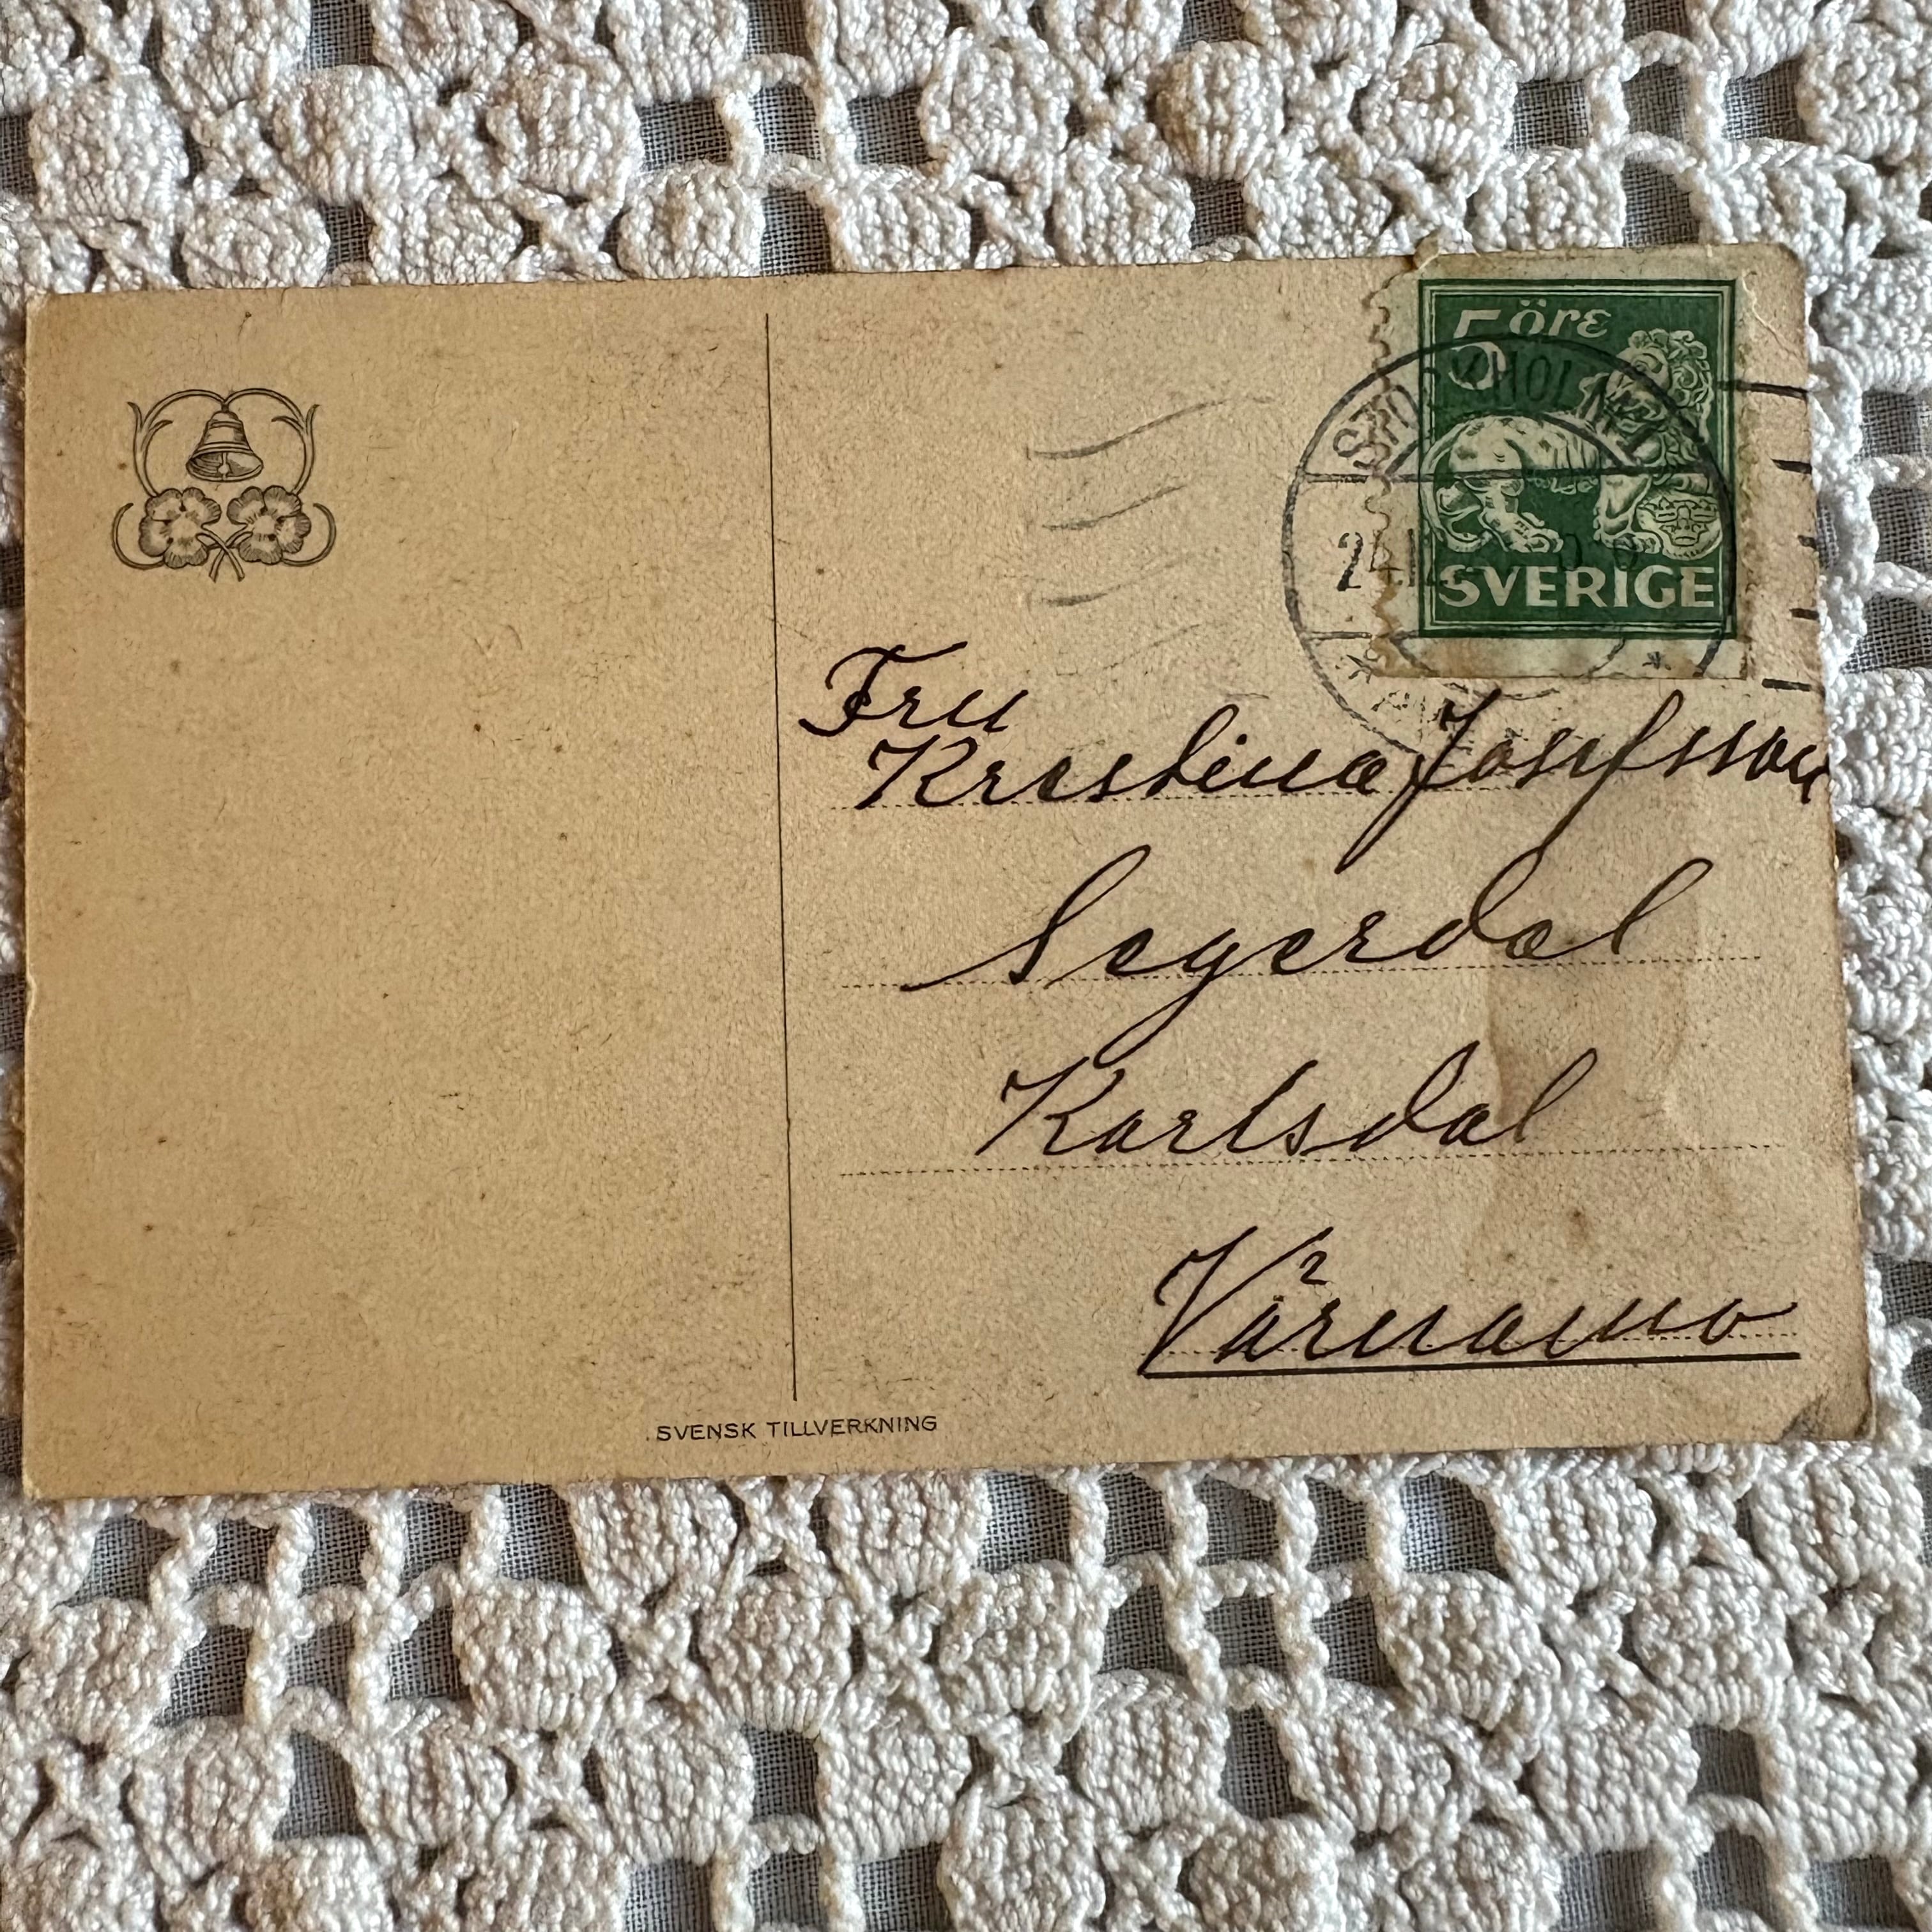 5 öre
STOCKHOLM
24.12
SVERIGE
Fru
Kristina Josefsson
Segerdal
Karlsdal
Värnamo
SVENSK TILLVERKNING